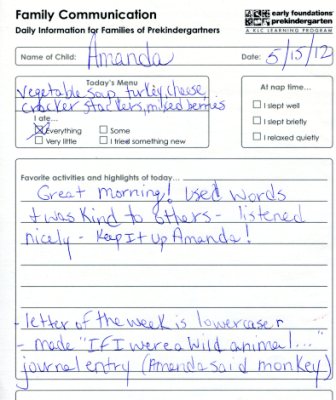 Family Communication
early foundations
prekindergarten
A KLC LEARNING PROGRAM
Daily Information for Families of Prekindergartners
Name of Child: Amanda
Date: 5/15/12
Today's Menu
Vegetable soup, turkey, cheese,
cracker stackers, mixed berries
I ate...
Everything
Some
Very little
I tried something new
At nap time...
I slept well
I slept briefly
I relaxed quietly
Favorite activities and highlights of today...
Great morning! Used words
+ was kind to others - listened
nicely - Keep it up Amanda!
- letter of the week is lowercase r
- made "If I were a wild animal..."
journal entry (Amanda said monkey)